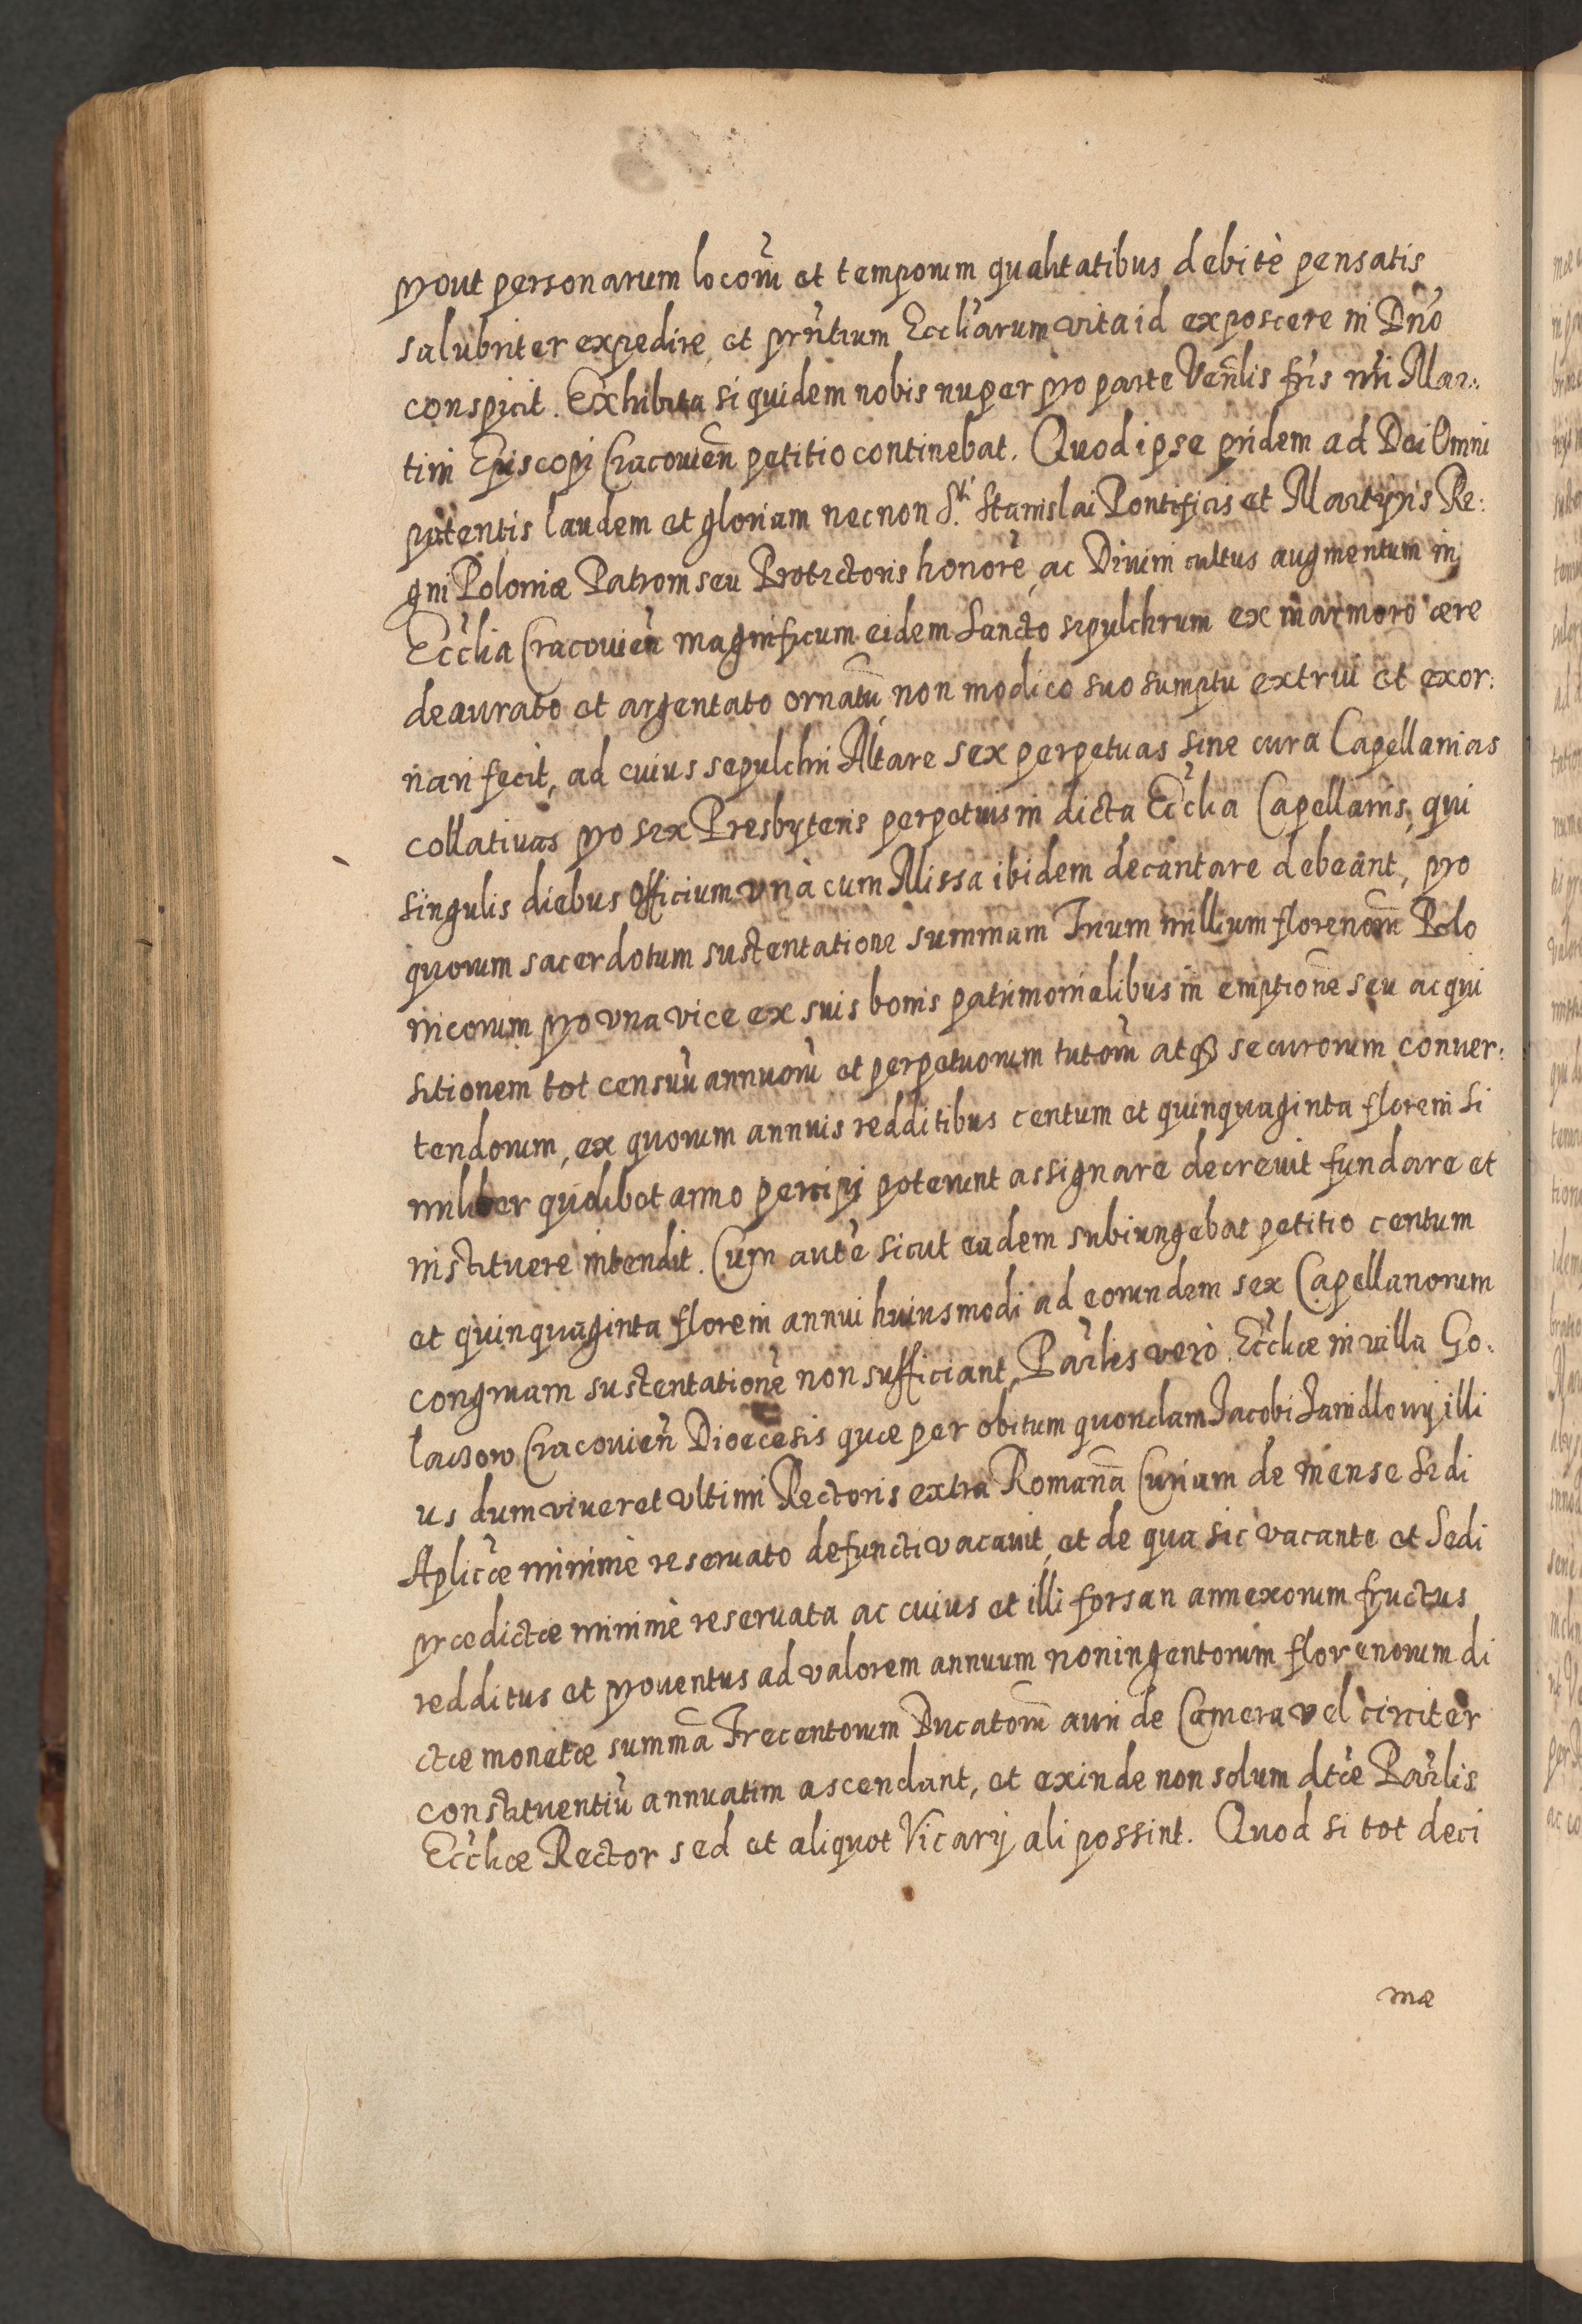 prout personarum locorũ et temporum qualitatibus debitè pensatis
salubriter expedire, et prñtium Eccĺiarum vita id exposcere in Dño
conspicit. Exhibita siquidem nobis nuper pro parte Veñlis fr̃is ñri Mar:
tini Episcopi Cracouieñ petitio continebat. Quod ipse pridem ad Dei Omni
potentis laudem et gloriam necnon S.ti Stanislai Pontificis et Martyris Re:
gni Poloniæ Patroni seu Protectoris honorẽ, ac Diuini cultus augmentum in
Ecclĩa Cracouieñ magnificum eidem Sancto sepulchrum ex marmoro ære
deaurato et argentato ornatũ, non modico suo sumptu extrui et exor:
nari fecit, ad cuius sepulchri Altare sex perpetuas sine cura Capellanias
collatiuas pro sex Presbyteris perpetuis in dicta Ecclĩa Capellanis, qui
singulis diebus Officium vnà cum Missa ibidem decantare debeant, pro
quorum sacerdotum sustentatione summam Trium millium florenorũ Polo
nicorum pro vna vice ex suis bonis patrimonialibus in emptionẽ seu acqui
sitionem tot censuũ annuorũ et perpetuorum tutorũ atq3 securorum conuer:
tendorum, ex quorum annuis redditibus centum et quinquaginta floreni si
militer quolibet anno percipi poterunt assignare decreuit fundare et
instituere intendit. Cum autẽ sicut eadem subiungebat petitio centum
et quinquaginta floreni annui huiusmodi ad eorundem sex Capellanorum
congruam sustentationẽ non sufficiant, Par̃lis verò Ecclĩæ in villa Go:
laczow Cracouieñ Dioecesis quæ per obitum quondam Jacobi Janidlowij illi
us dum viueret vltimi Rectoris extra Romanã Curiam de mense Sedi
Aplicæ minimè reseruato defuncti vacauit, et de qua sic vacante et Sedi
prædictæ minimè reseruata ac cuius et illi forsan annexorum fructus
redditus et prouentus ad valorem annuum noningentorum florenorum di
ctæ monetæ summã Trecentorum Ducatorũ auri de Camera vel circiter
constituentiũ annuatim ascendant, et exinde non solum dt̃æ Par̃lis
Ecclĩæ Rector sed et aliquot Vicarij ali possint. Quod si tot deci
mæ